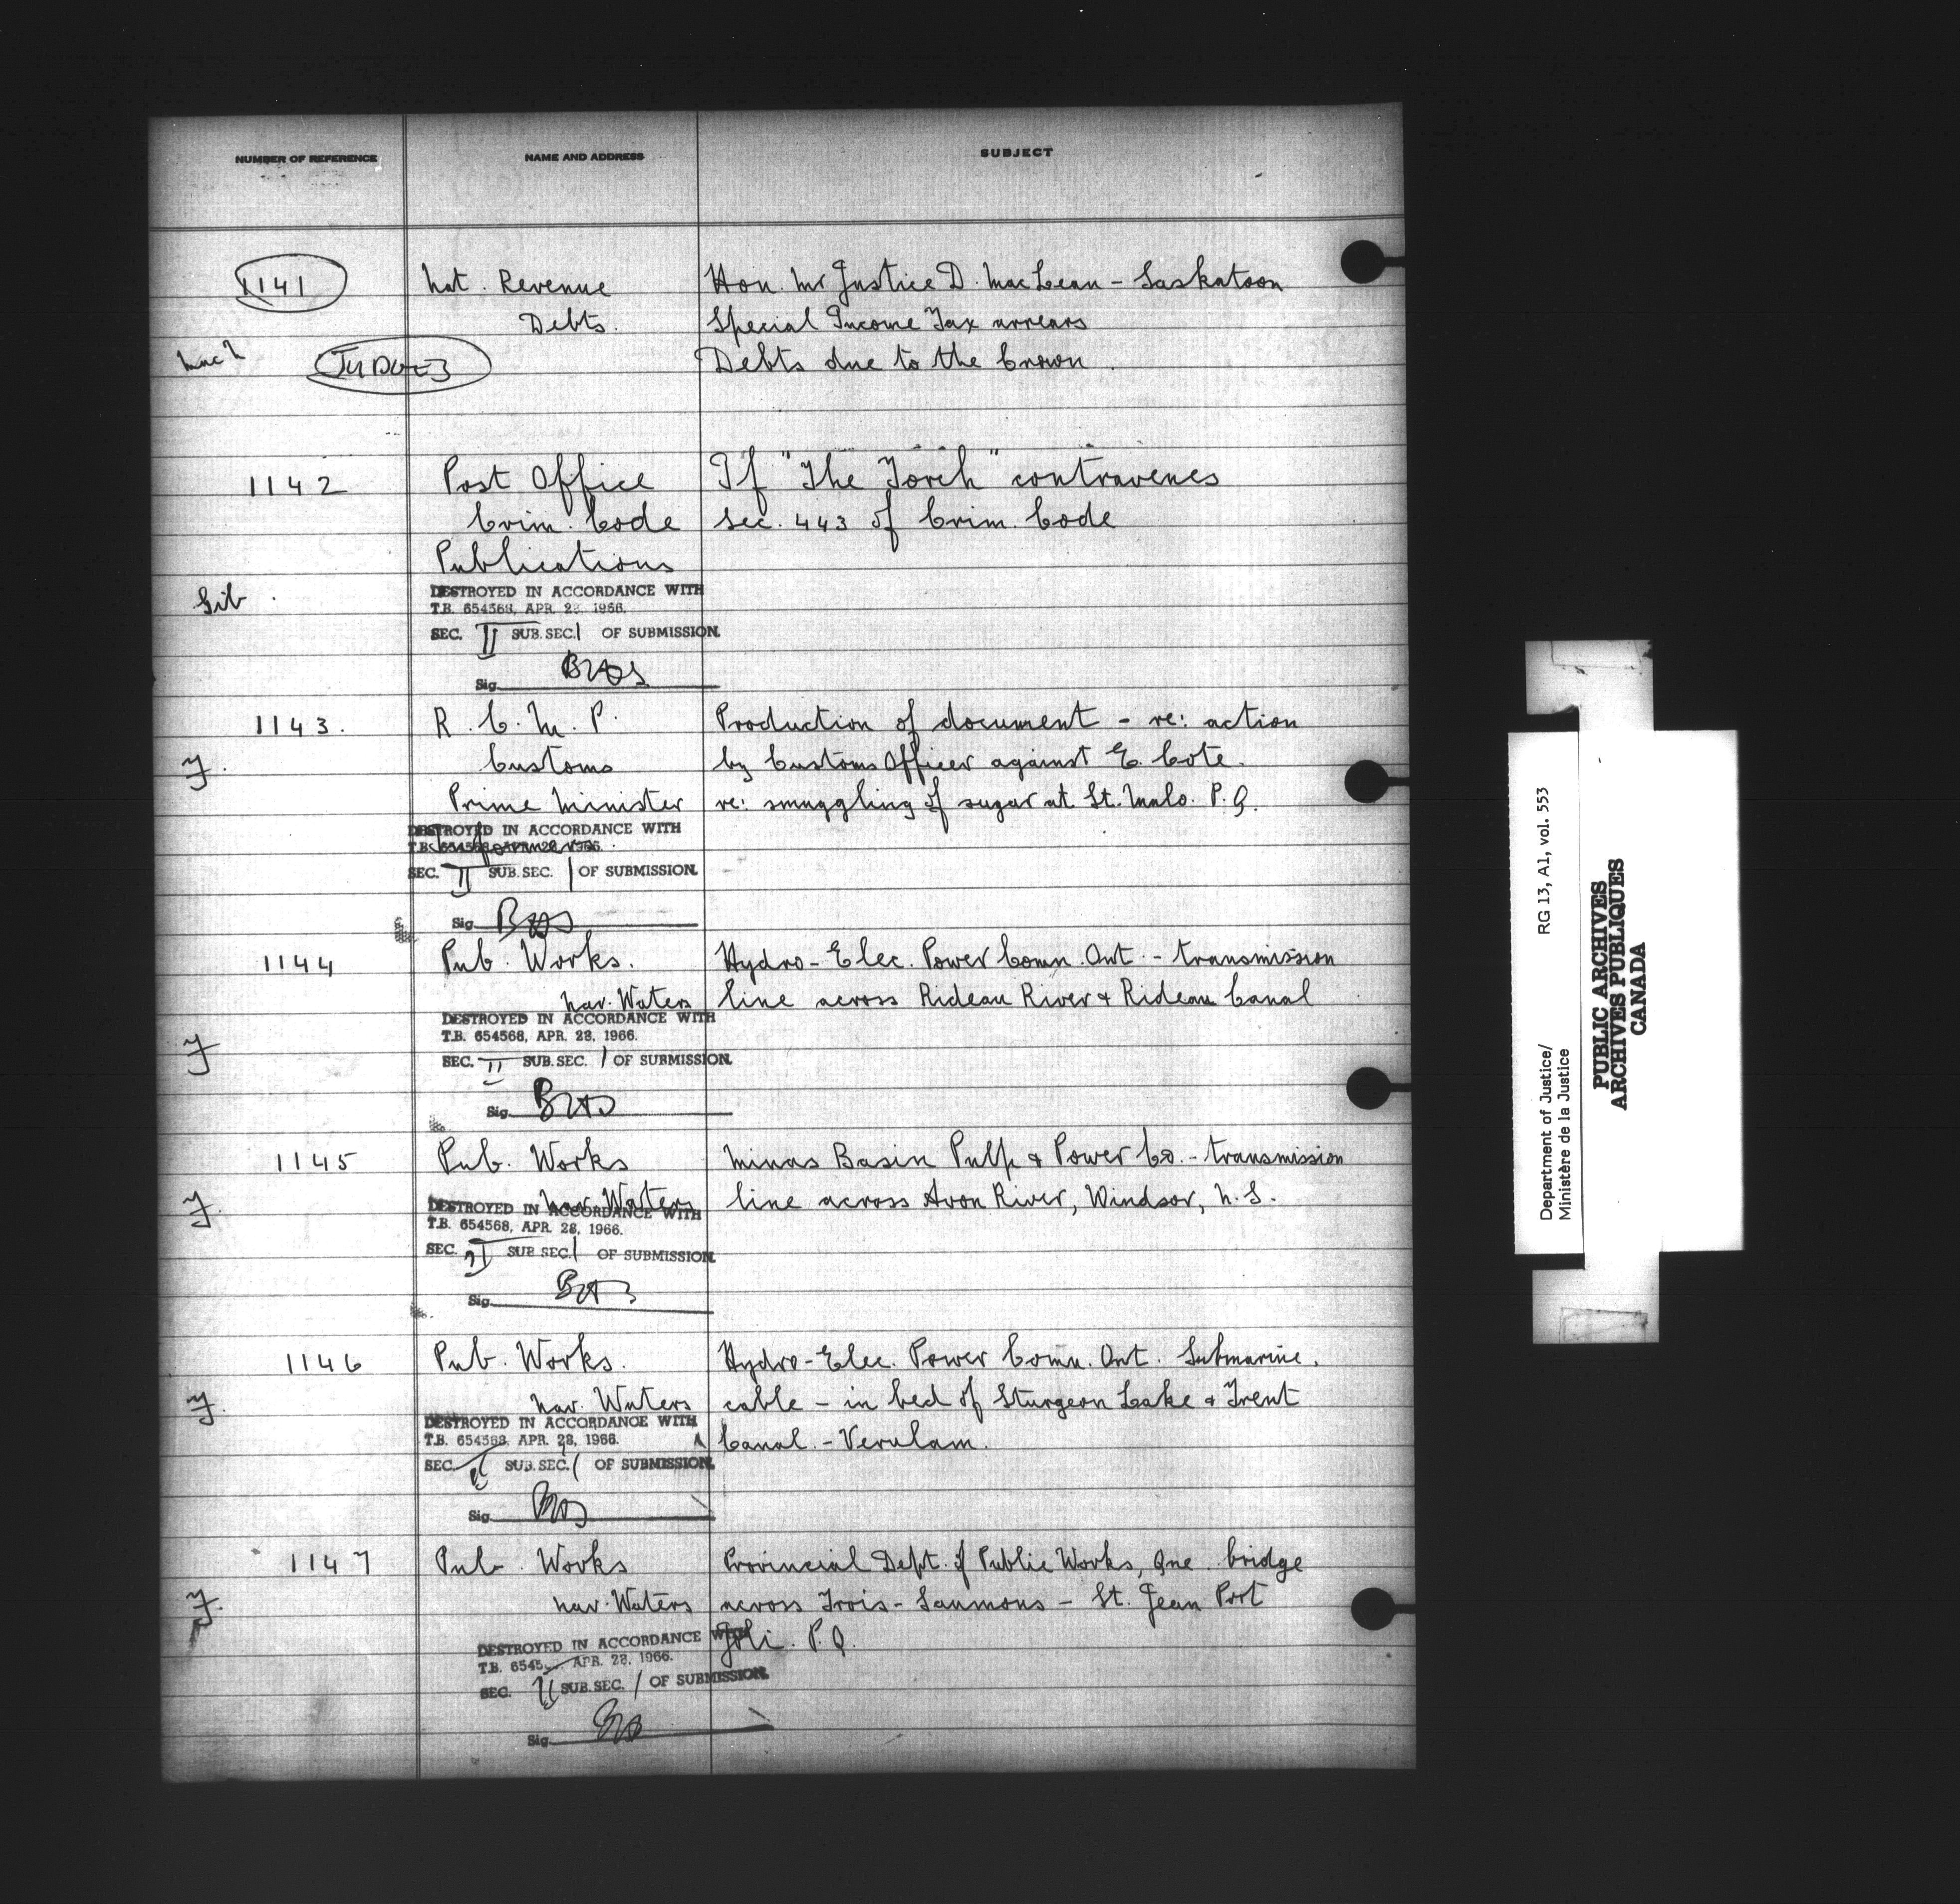 NUMBER OF REFERENCE NAME AND ADDRESS SUBJECT
1141 Nat. Revenue Hon. Mr Justice D. MacLean - Saskatoon
Debts. Special Income Tax arrears
JUDGES Debts due to the Crown.
1142 Post Office If "The Torch" contravenes
Crim. Code Sec. 443 of Crim. Code
Publications
DESTROYED IN ACCORDANCE WITH
T.B. 654568, APR. 28, 1966.
SEC. II SUB. SEC. 1 OF SUBMISSION.
Sig.
1143. R. C. M. P. Production of document - re: action
Customs by Customs Officer against E. Cote.
Prime Minister re: smuggling of sugar at St. Malo. P.Q.
DESTROYED IN ACCORDANCE WITH
T.B. 654568, APR. 28, 1966.
Informers
SEC. II SUB. SEC. 1 OF SUBMISSION.
Sig.
1144 Pub. Works. Hydro-Elec. Power Comn. Ont. - transmission
Nav. Waters line across Rideau River & Rideau Canal
DESTROYED IN ACCORDANCE WITH
T.B. 654568, APR. 28, 1966.
SEC. II SUB. SEC. 1 OF SUBMISSION.
Sig.
1145 Pub. Works Minas Basin Pulp & Power Co. - transmission
Nav. Waters line across Avon River, Windsor, N.S.
DESTROYED IN ACCORDANCE WITH
T.B. 654568, APR. 28, 1966.
SEC. II SUB. SEC. 1 OF SUBMISSION.
Sig.
1146 Pub. Works. Hydro-Elec. Power Comn. Ont. Submarine
Nav. Waters cable - in bed of Sturgeon Lake & Trent
DESTROYED IN ACCORDANCE WITH
T.B. 654568, APR. 28, 1966. Canal - Verulam.
SEC. II SUB. SEC. 1 OF SUBMISSION.
Sig.
1147 Pub. Works Provincial Dept. of Public Works, Que. bridge
Nav. Waters across Trois-Saumons - St. Jean Port
Joli. P.Q.
DESTROYED IN ACCORDANCE WITH
T.B. 6545 APR. 28, 1966.
SEC. II SUB. SEC. 1 OF SUBMISSION.
Sig.
Department of Justice/ RG 13, A1, vol. 553
Ministère de la Justice
PUBLIC ARCHIVES
ARCHIVES PUBLIQUES
CANADA